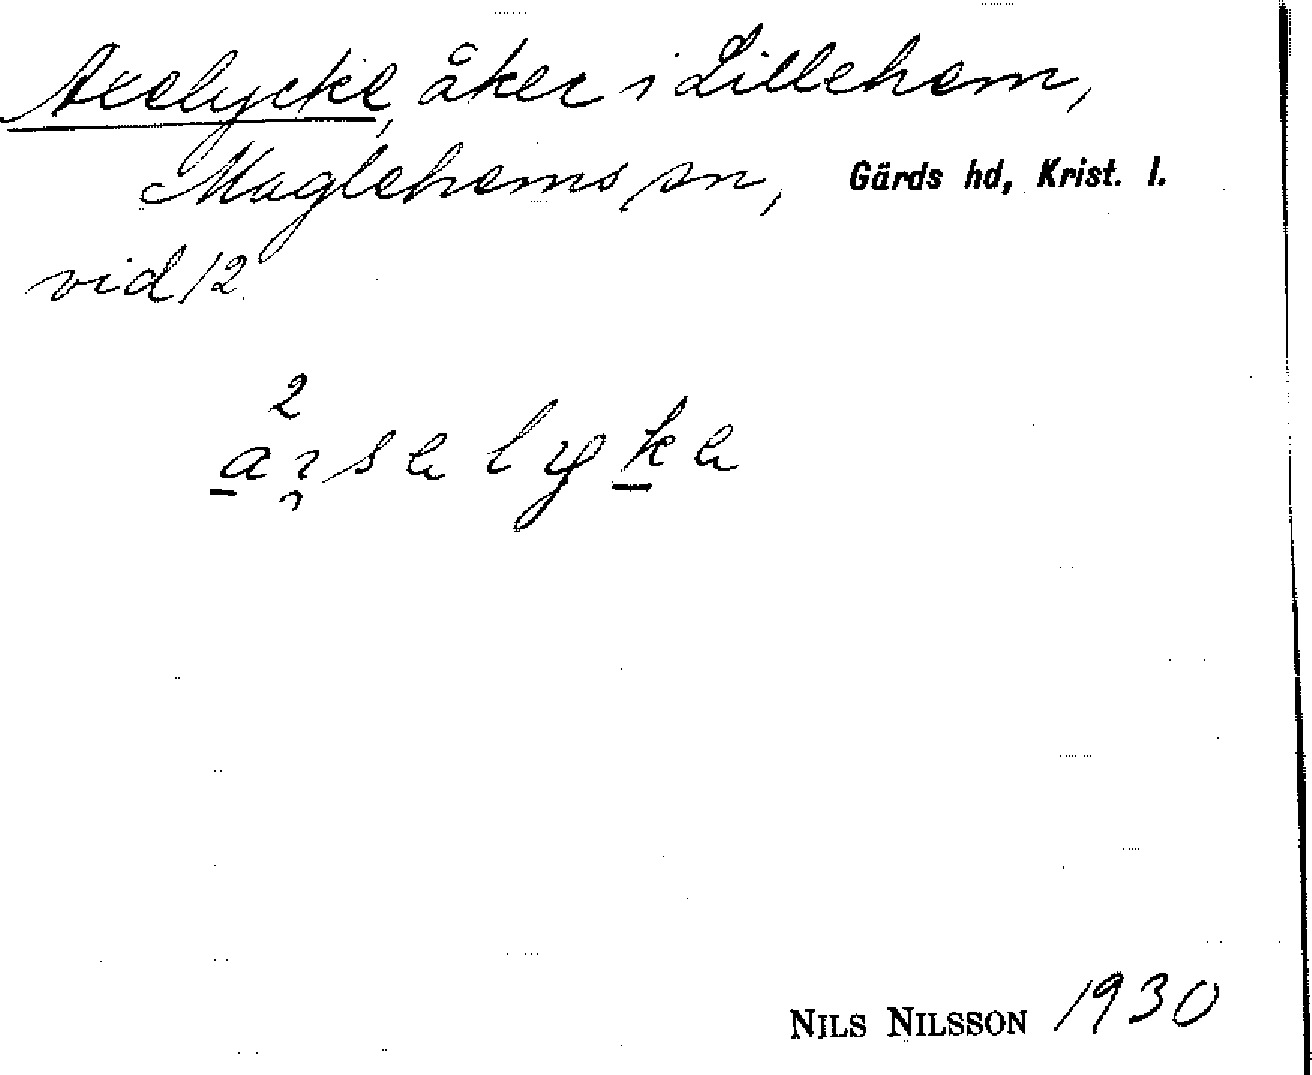 Axelycke, åker i Lillehem,
Maglehems sn, Gärds hd, Krist. l.
vid 12
2
arselyke
NILS NILSSON 1930